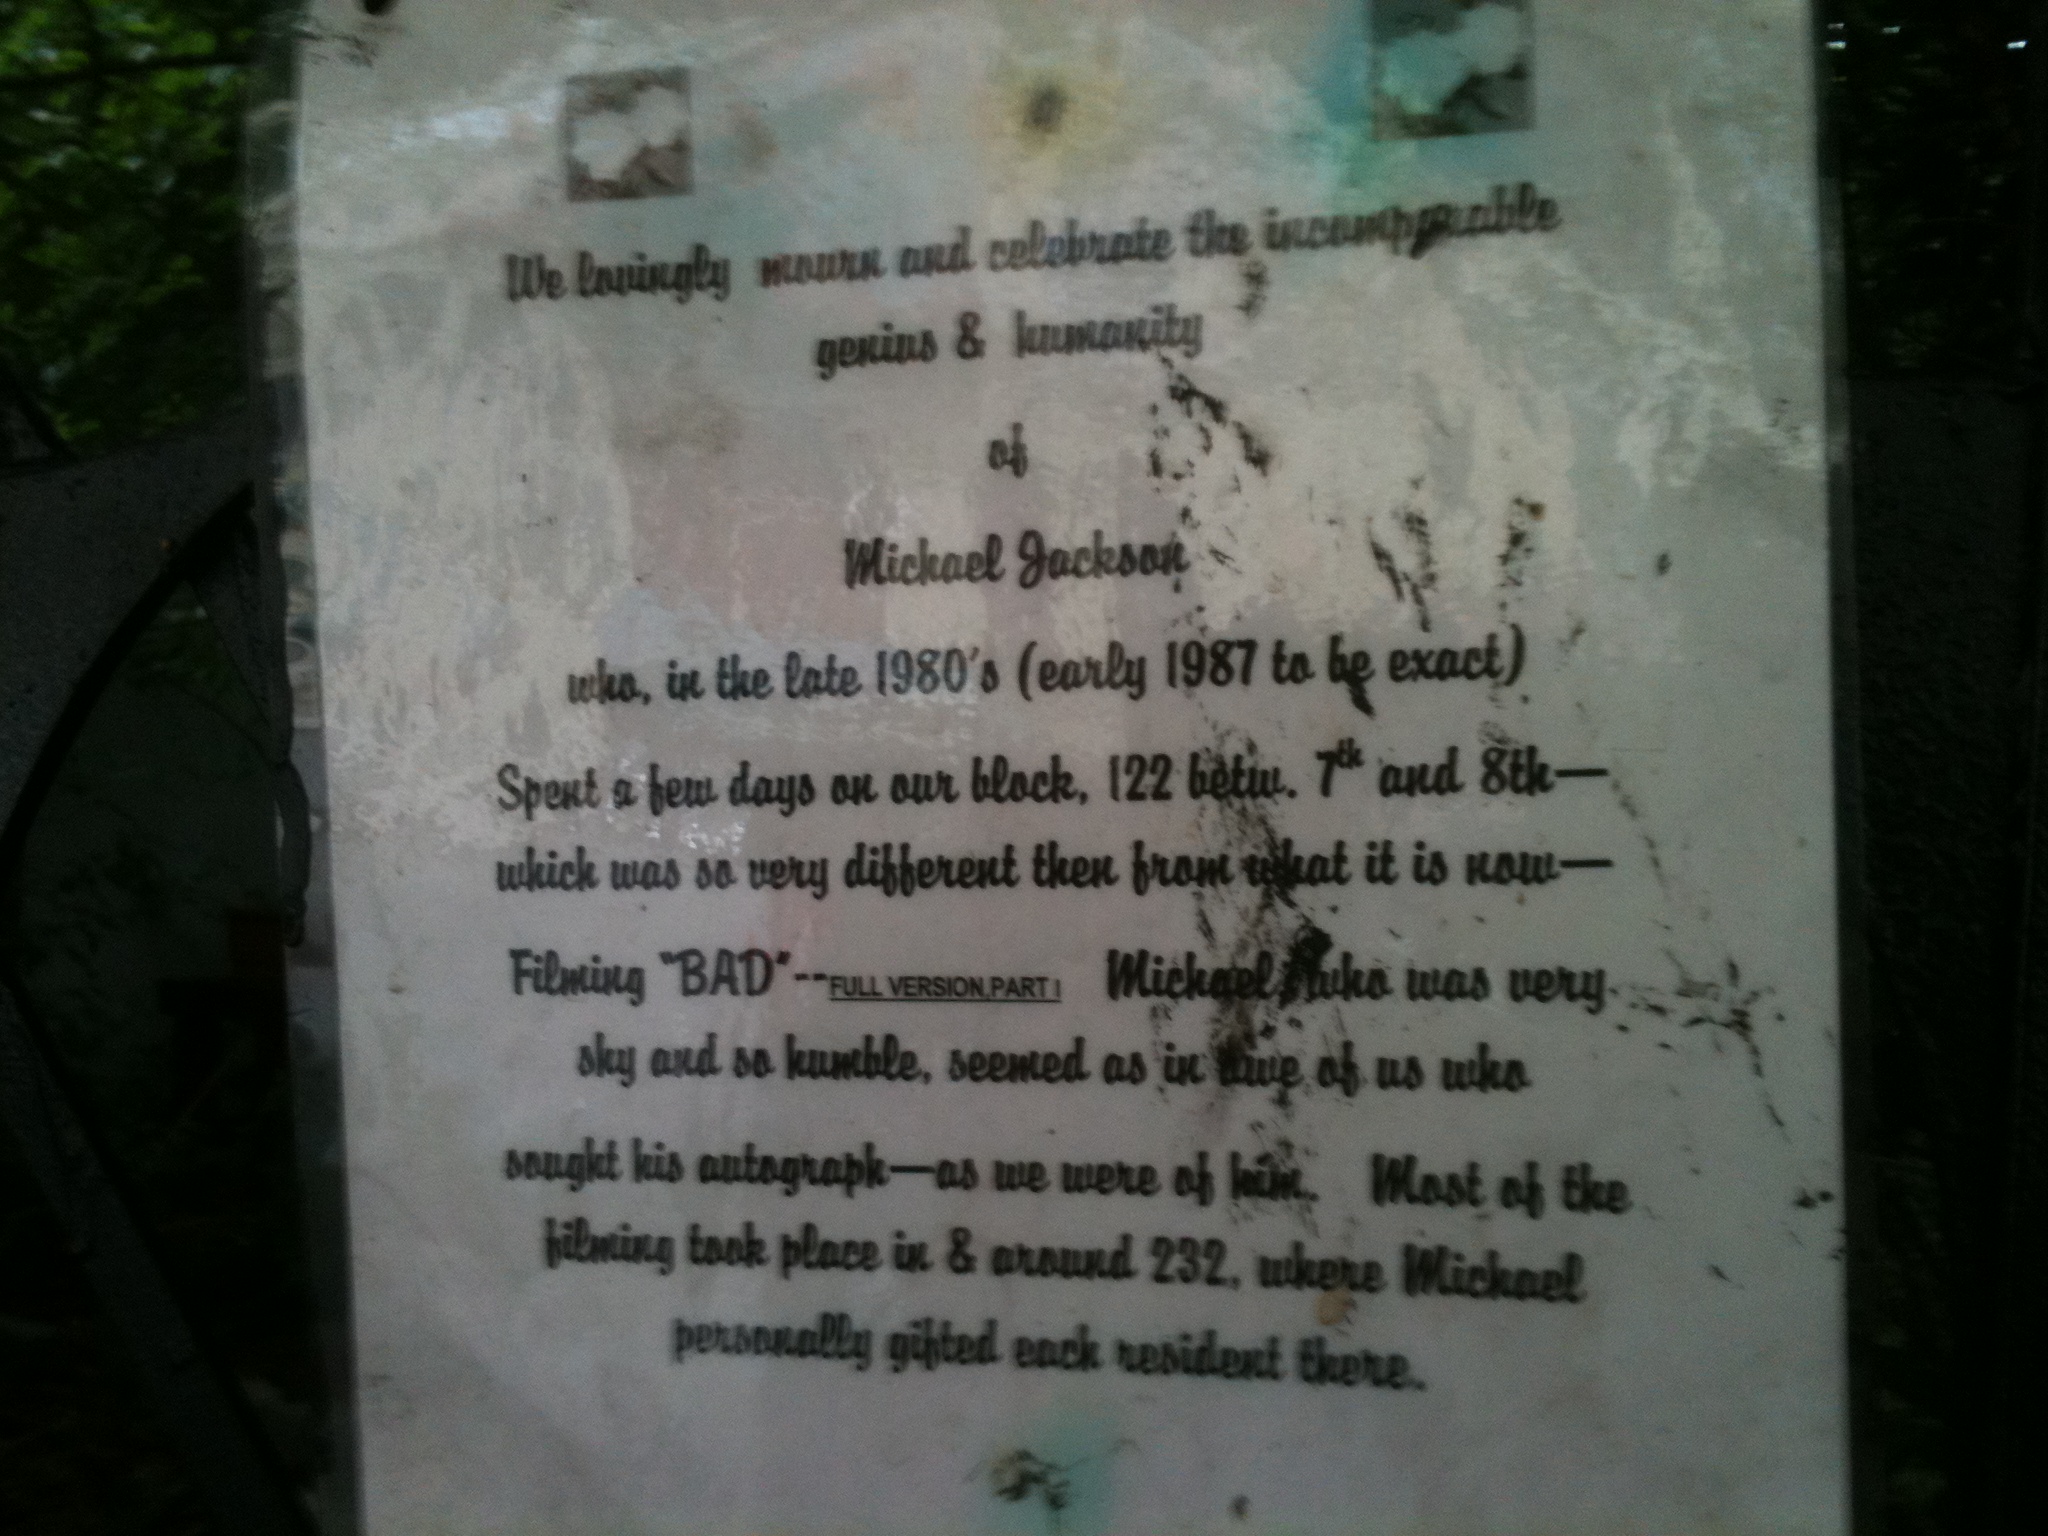 We lovingly mourn and celebrate the incomparable
genius & humanity
of
Michael Jackson
who, in the late 1980's (early 1987 to be exact)
Spent a few days on our block, 122 betw. 7th and 8th—
which was so very different then from what it is now—
Filming "BAD"--FULL VERSION,PART I Michael, who was very
shy and so humble, seemed as in awe of us who
sought his autograph—as we were of him. Most of the
filming took place in & around 232, where Michael
personally gifted each resident there.